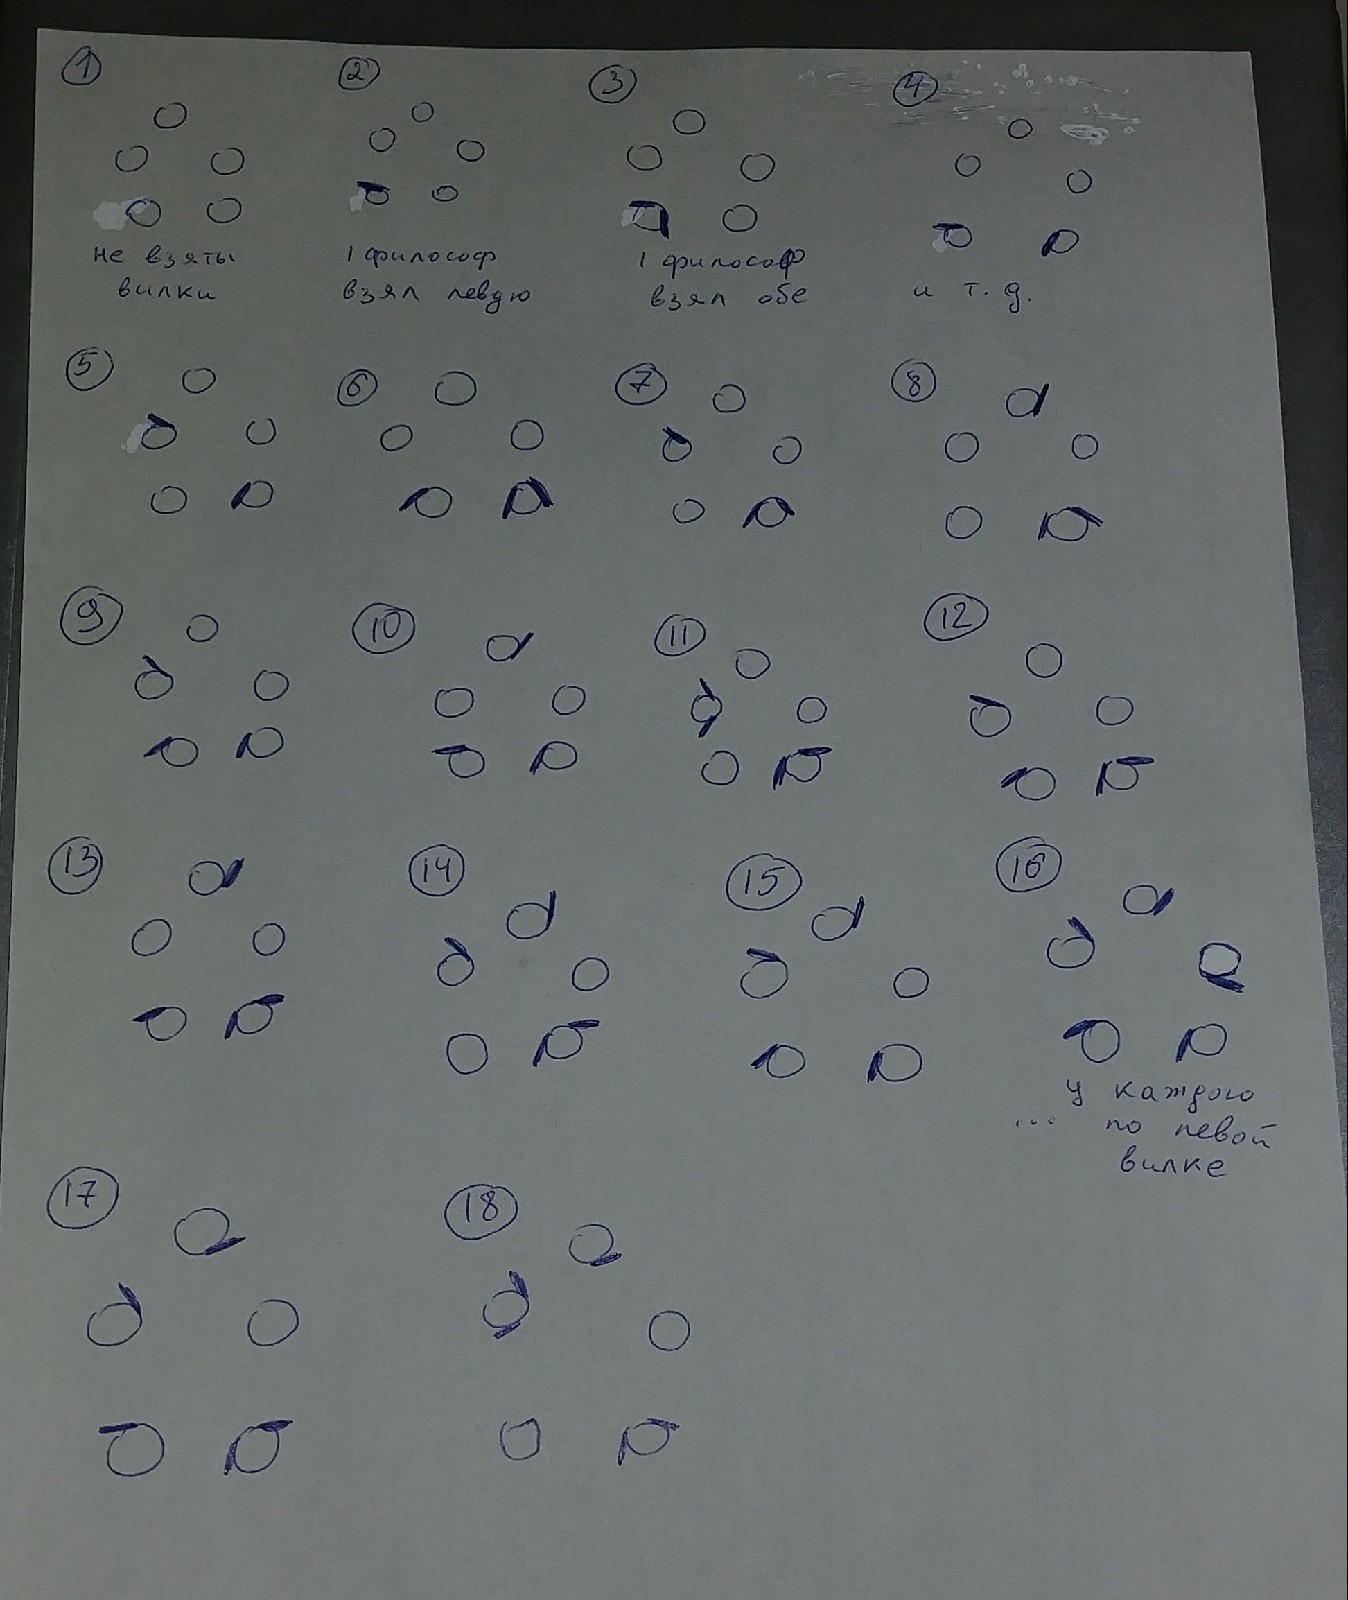 1
2
3
4
не взяты
вилки
1 философ
взял левую
1 философ
взял обе
и т. д.
5
6
7
8
9
10
11
12
13
14
15
16
у каждого
... по левой
вилке
17
18